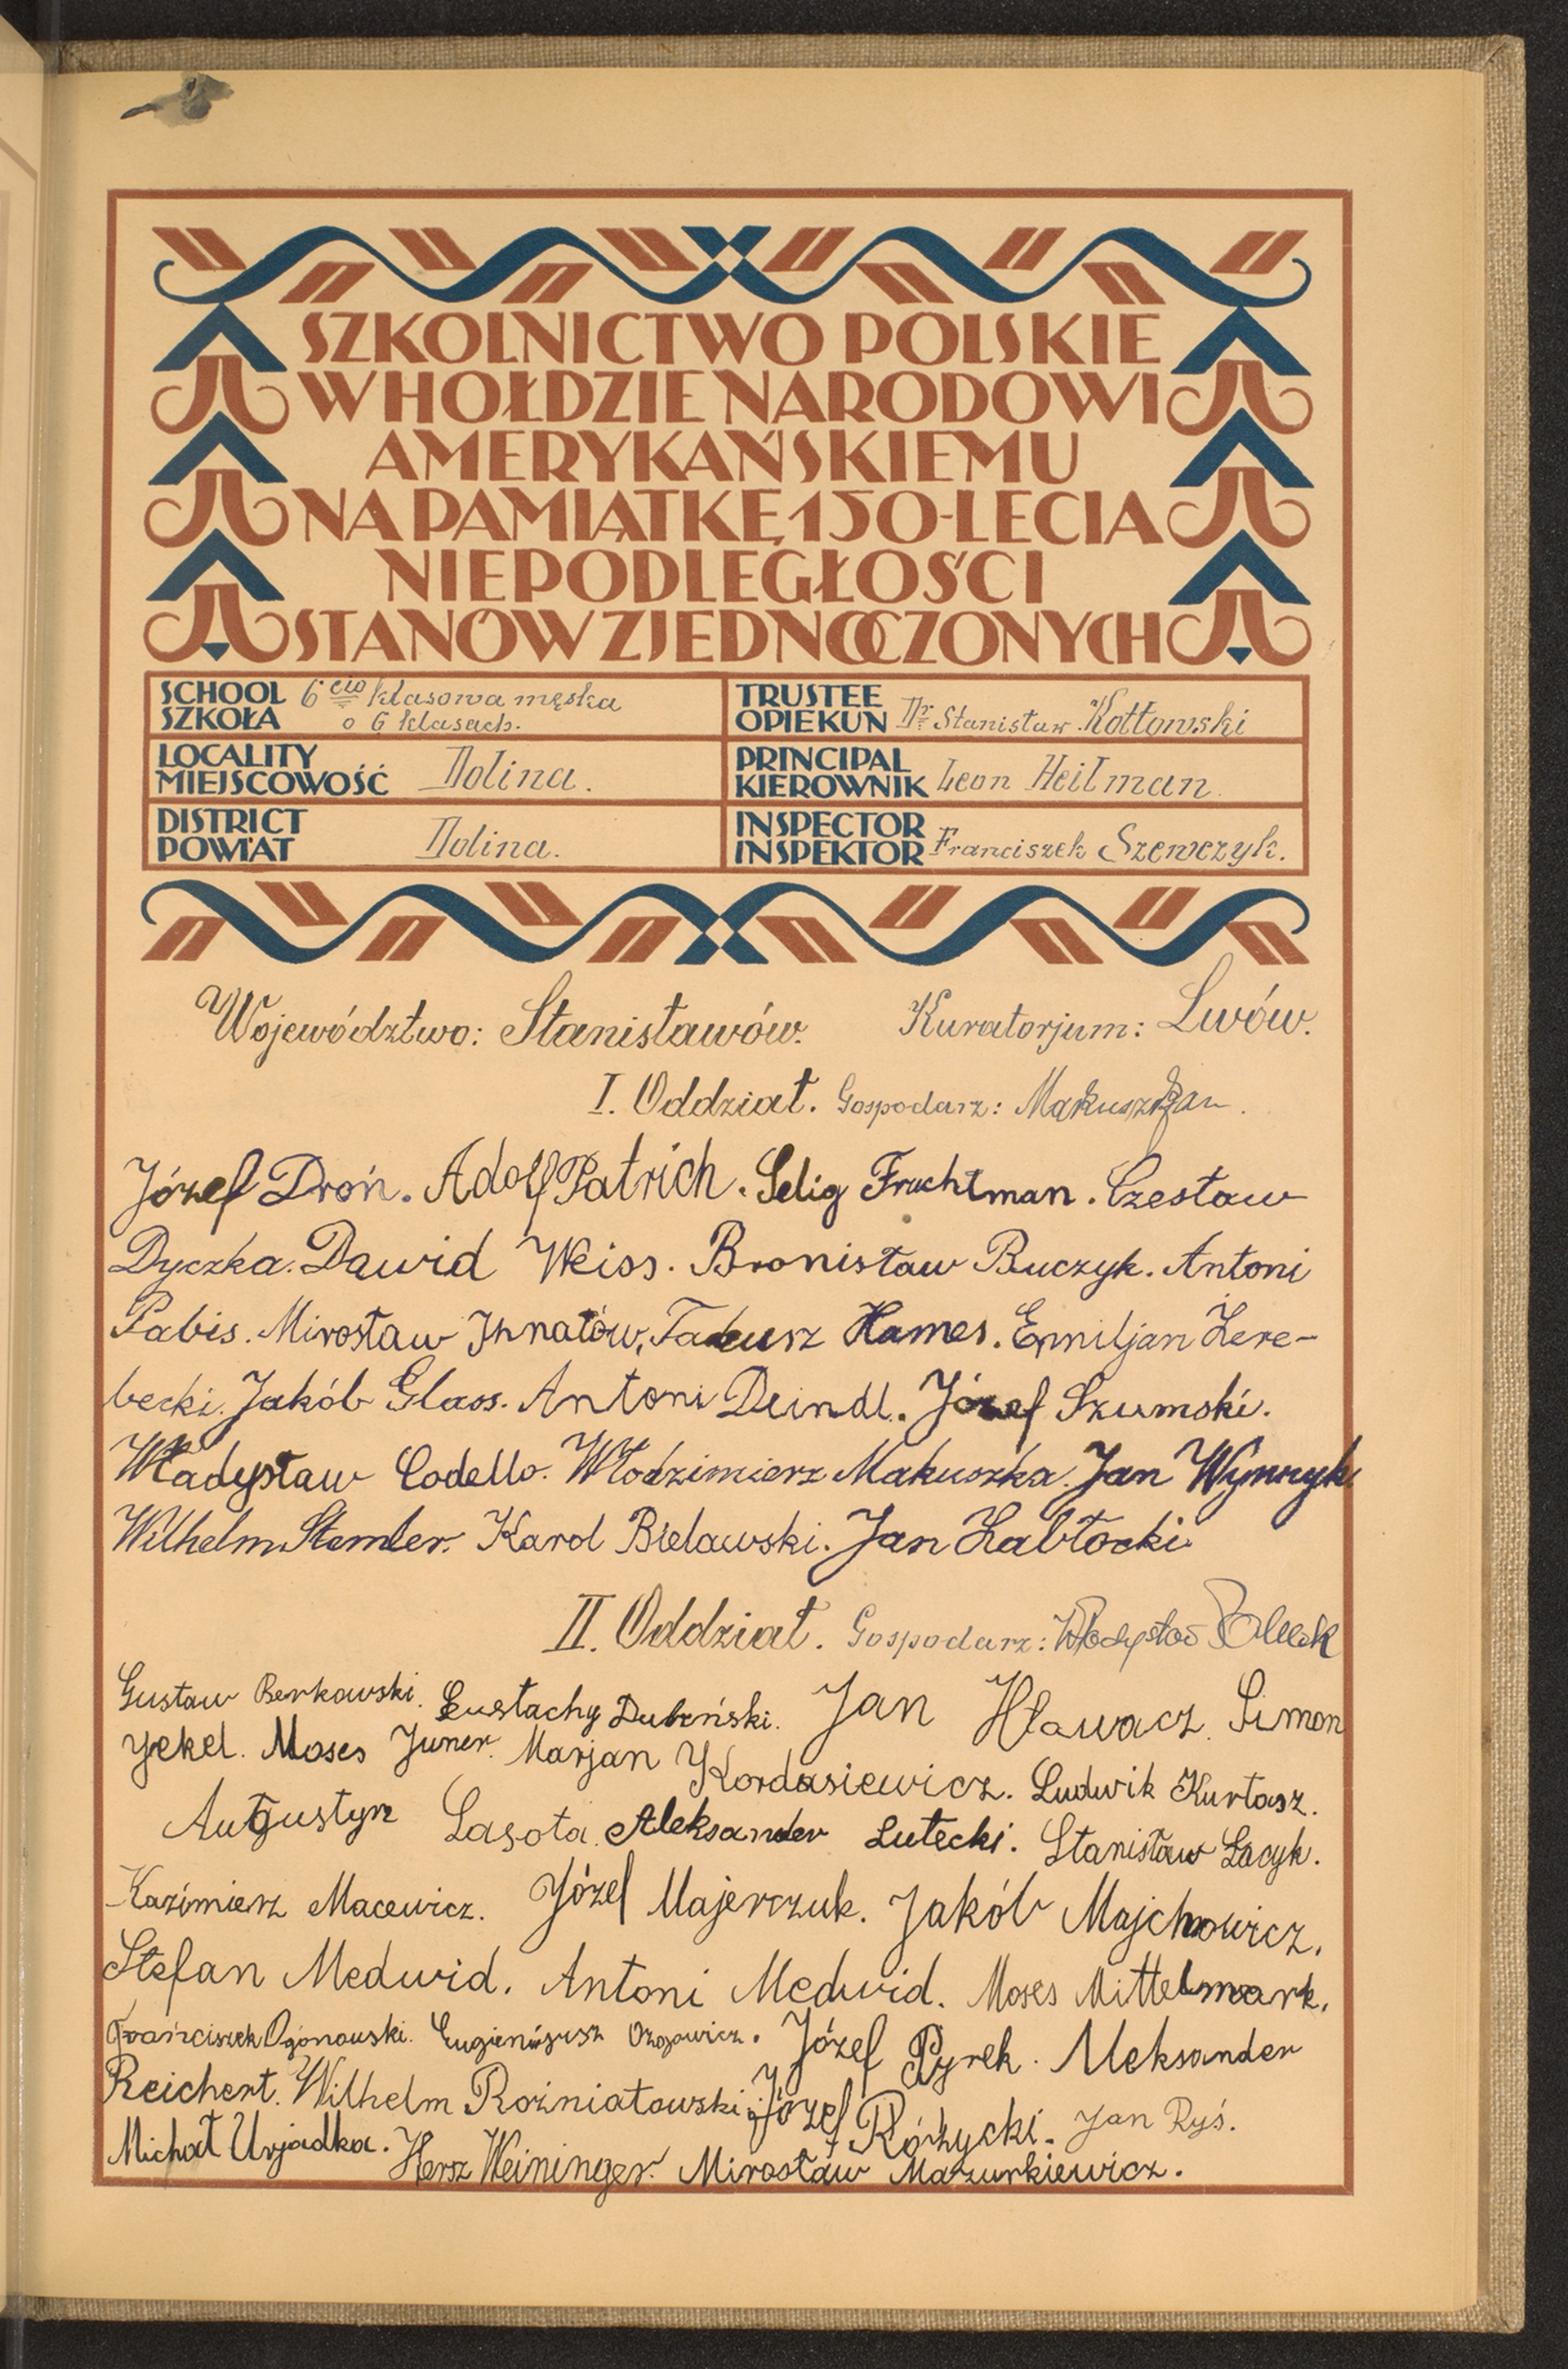 SZKOLNICTWO POLSKIE
W HOŁDZIE NARODOWI
AMERYKAŃSKIEMU
NA PAMIĄTKĘ 150-LECIA
NIEPODLEGŁOŚCI
STANÓW ZJEDNOCZONYCH
SCHOOL
SZKOŁA
6cio klasowa męska
o 6 klasach.
TRUSTEE
OPIEKUN
Dr Stanisław Kotłowski
LOCALITY
MIEJSCOWOŚĆ
Dolina.
PRINCIPAL
KIEROWNIK
Leon Heilman.
DISTRICT
POWIAT
Dolina.
INSPECTOR
INSPEKTOR
Franciszek Szewczyk.
Województwo: Stanisławów. Kuratorjum: Lwów.
I. Oddział. Gospodarz:
Józef Droń. Adolf Patrich. Selig Fruchtman. Czesław
Dyczka. Dawid Weiss. Bronisław Buczyk. Antoni
Pabis. Mirosław Ihnatów. Tadeusz Hames. Emiljan Żere-
becki. Jakób Glass. Antoni Deindl. Józef Szumski.
Władysław Codello. Włodzimierz Makuszka. Jan
Wilhelm Stemler. Karol Bielawski. Jan Zabłocki
II. Oddział. Gospodarz:
Gustaw Berkowski. Eustachy Jan Hławacz. Simon
Jekel. Moses Juner. Marjan Kordasiewicz. Ludwik Kurtasz.
Augustyn Lasota. Aleksander Lutecki. Stanisław Łacyk.
Kazimierz Macewicz. Józef Majerczuk. Jakób Majchrowicz.
Stefan Medwid. Antoni Medwid. Moses Mittelmark.
Franciszek Ogonowski. Eugenjusz Józef Pyrek. Aleksander
Reichert. Wilhelm Rożniatowski. Józef Różycki. Jan Ryś.
Michał Urjadka. Hersz Weininger. Mirosław Mazurkiewicz.